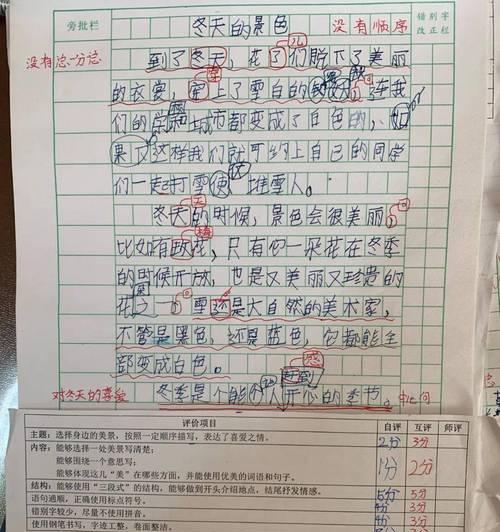 旁批栏
冬天的景色
没有顺序
错别字
改正栏
没有总-分总
到了冬天，花儿们脱下了美丽
的衣裳，穿上了雪白的
连我
们的城市都变成了白色的，如
果又这样我们就可约上自己的同学
们一起打雪堆雪人。
冬天的时候，景色会很美丽，
比如有梅花，只有它一朵花在冬季
的时候开放，也是又美丽又珍贵的
花之一。雪还是大自然的美术家，
不管是黑色，还是蓝色，它都能全
部变成白色。
感
对冬天的喜爱
冬季是个能令人开心的季节。
评价项目
自评
互评
师评
主题：选择身边的美景，按照一定顺序描写，表达了喜爱之情。
2分
3分
内容：能够选择一处美景写清楚；
能够围绕一个意思写；
能够体现这儿“美”在哪些方面，并能使用优美的词语和句子。
1分
2分
结构：能够使用“三段式”的结构，能够做到开头介绍地点，结尾抒发情感。
5分
语句通顺，正确使用标点符号。
5分
错别字较少，尽量不使用拼音。
3分
使用钢笔书写，字迹工整，卷面整洁。